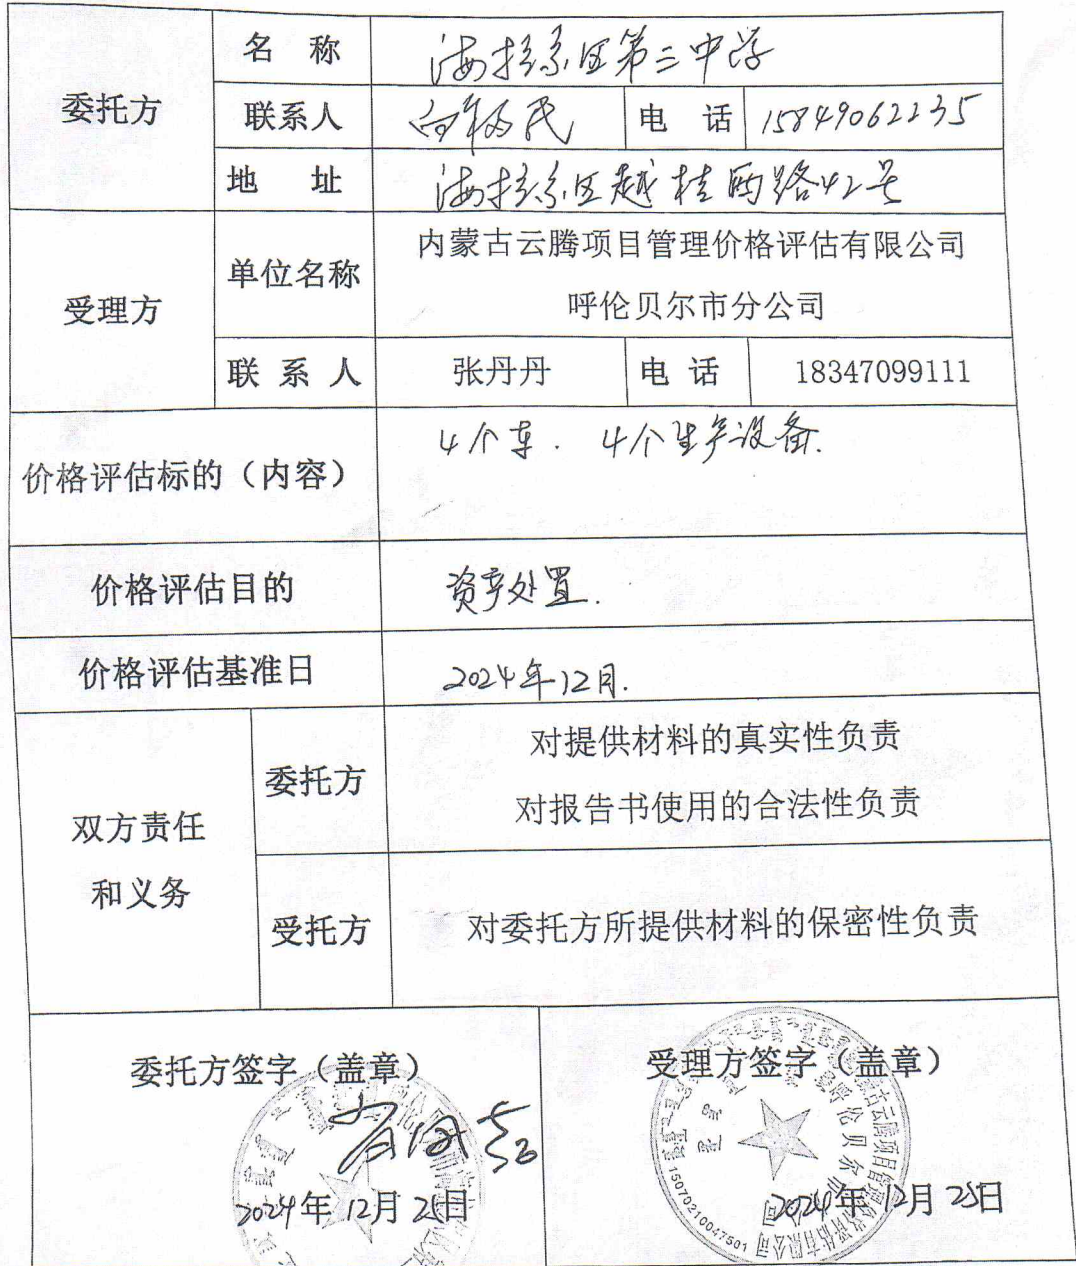 委托方
名 称 海拉尔区第二中学
联系人 电 话 15849062235
地 址 海拉尔区越桂西路42号
受理方
单位名称 内蒙古云腾项目管理价格评估有限公司
呼伦贝尔市分公司
联 系 人 张丹丹 电 话 18347099111
价格评估标的（内容） 4个车. 4个生产设备.
价格评估目的 资产处置.
价格评估基准日 2024年12月.
双方责任
和义务
委托方 对提供材料的真实性负责
对报告书使用的合法性负责
受托方 对委托方所提供材料的保密性负责
委托方签字（盖章）
2024年 12月 25日
受理方签字（盖章）
2024年 12月 25日
15070210047501